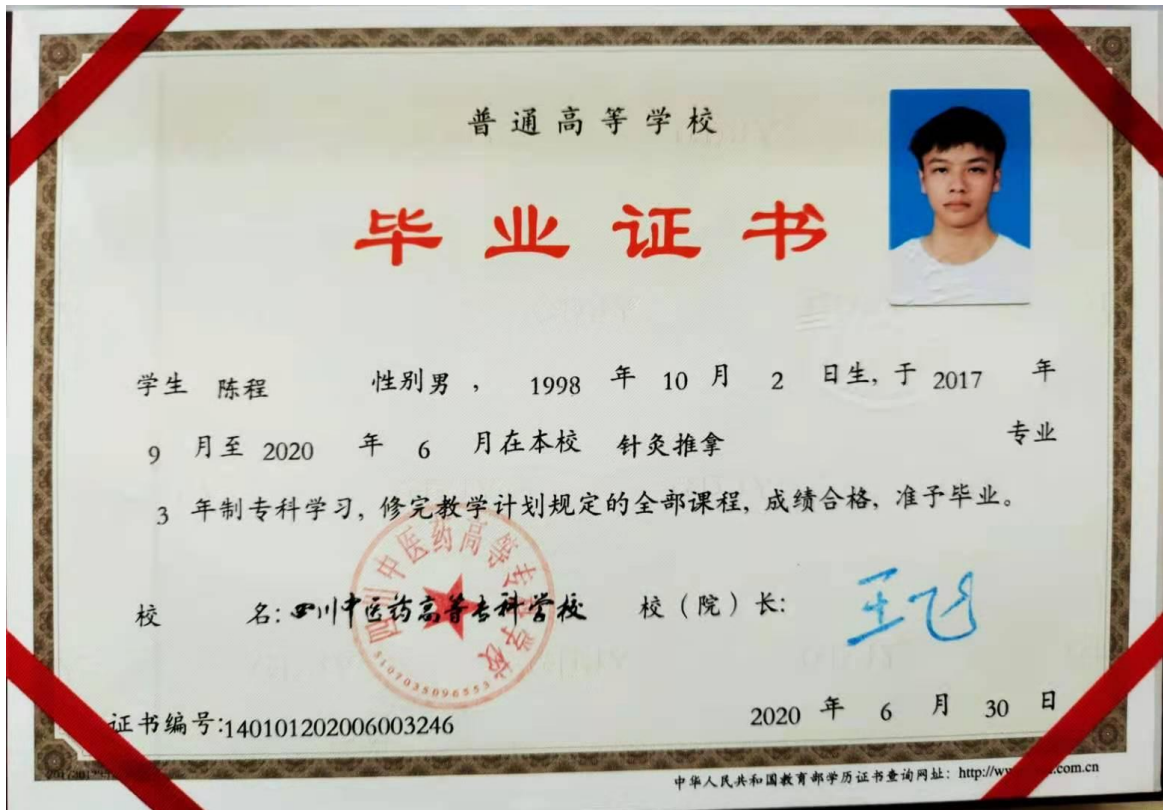 普通高等学校
毕业证书
学生 陈程 性别男 , 1998 年 10 月 2 日生, 于 2017 年
9 月至 2020 年 6 月在本校 针灸推拿 专业
3 年制专科学习, 修完教学计划规定的全部课程, 成绩合格, 准予毕业。
四川中医药高等专科学校
5107035096553
校 名: 四川中医药高等专科学校 校（院）长: 王飞
证书编号:140101202006003246 2020 年 6 月 30 日
中华人民共和国教育部学历证书查询网址: http://ww .com.cn